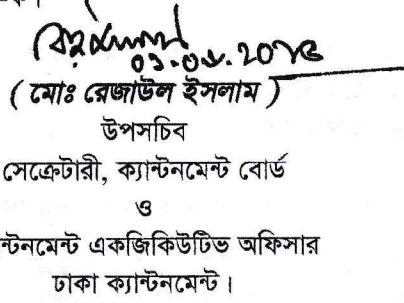 ( মোঃ রেজাউল ইসলাম )
উপসচিব
সেক্রেটারী, ক্যান্টনমেন্ট বোর্ড
ও
ন্টনমেন্ট একজিকিউটিভ অফিসার
ঢাকা ক্যান্টনমেন্ট।